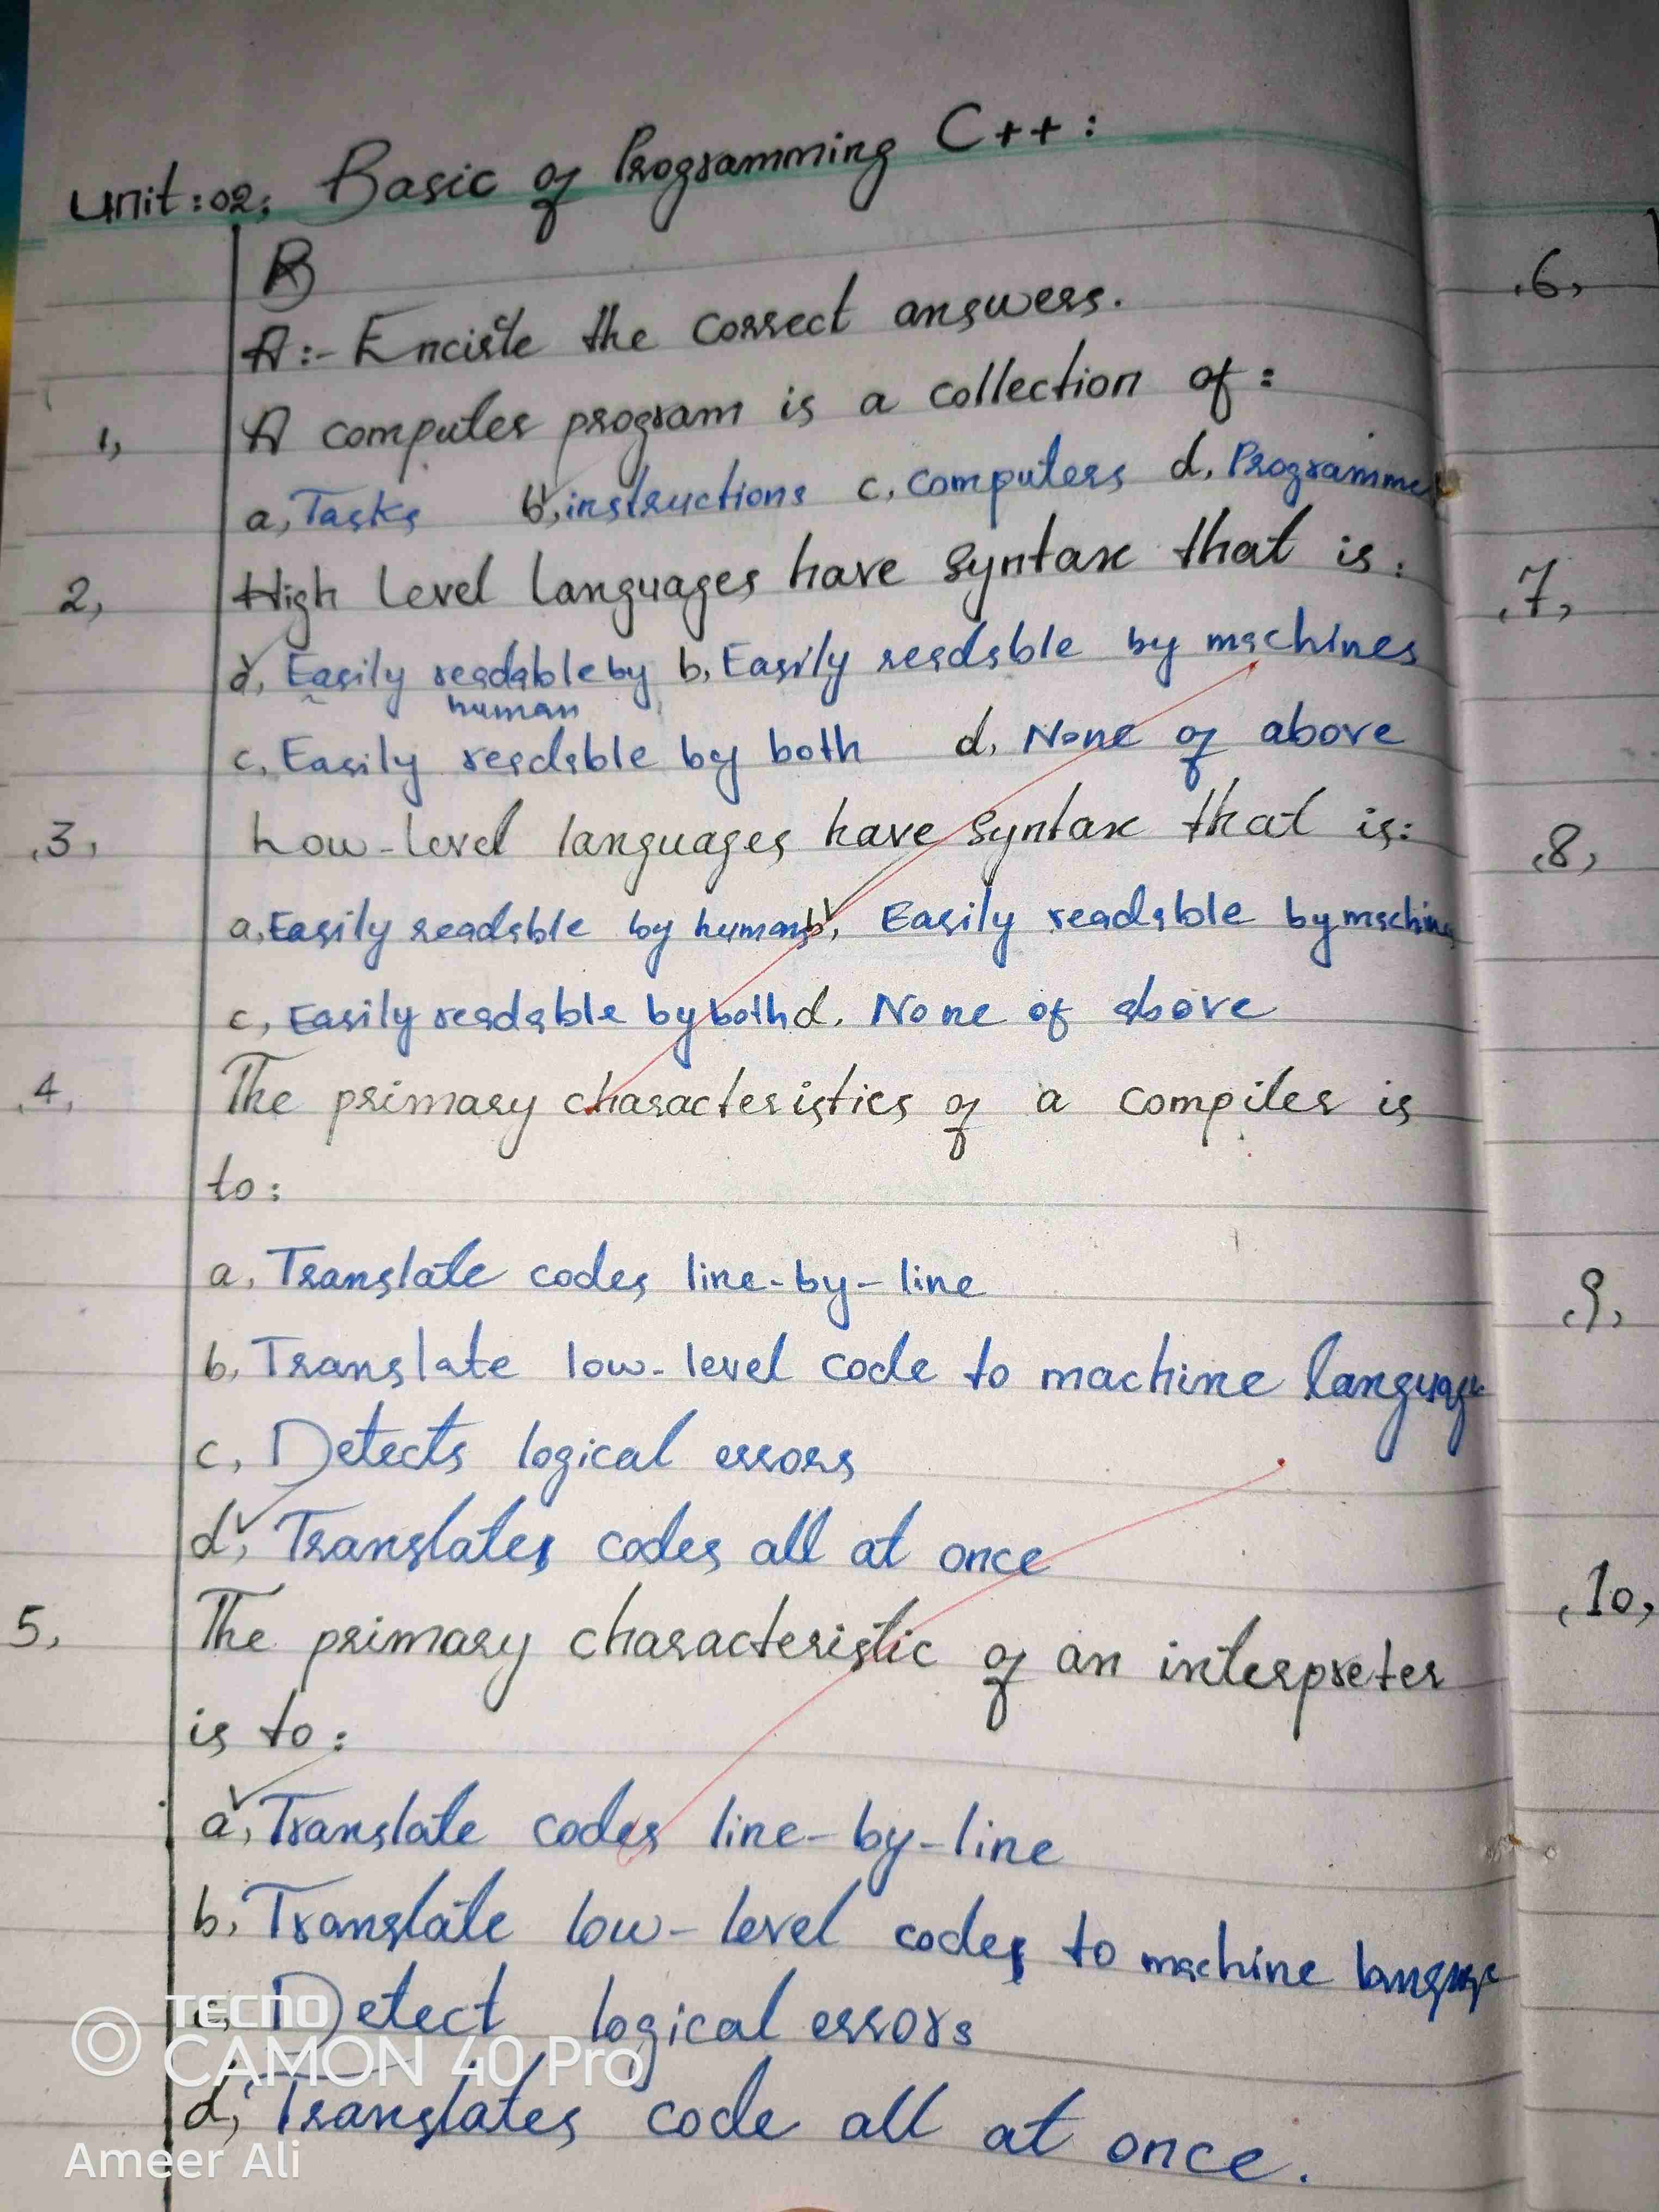 Unit:02: Basic of Programming C++:
A:- Encircle the correct answers.
1, A computer program is a collection of:
a, Tasks b, instructions c, computers d, Programmer
2, High level languages have syntax that is:
a, Easily readable by human b, Easily readable by machines
c, Easily readable by both d, None of above
,3, Low-level languages have syntax that is:
a, Easily readable by humans b, Easily readable by machine
c, Easily readable by both d, None of above
,4, The primary characteristics of a compiler is
to:
a, Translate codes line-by-line
b, Translate low-level code to machine language
c, Detects logical errors
d, Translates codes all at once
5, The primary characteristic of an interpreter
is to:
a, Translate codes line-by-line
b, Translate low-level codes to machine language
c, Detect logical errors
d, Translates code all at once.
,6,
,7,
,8,
,9,
,10,
TECNO
CAMON 40 Pro
Ameer Ali